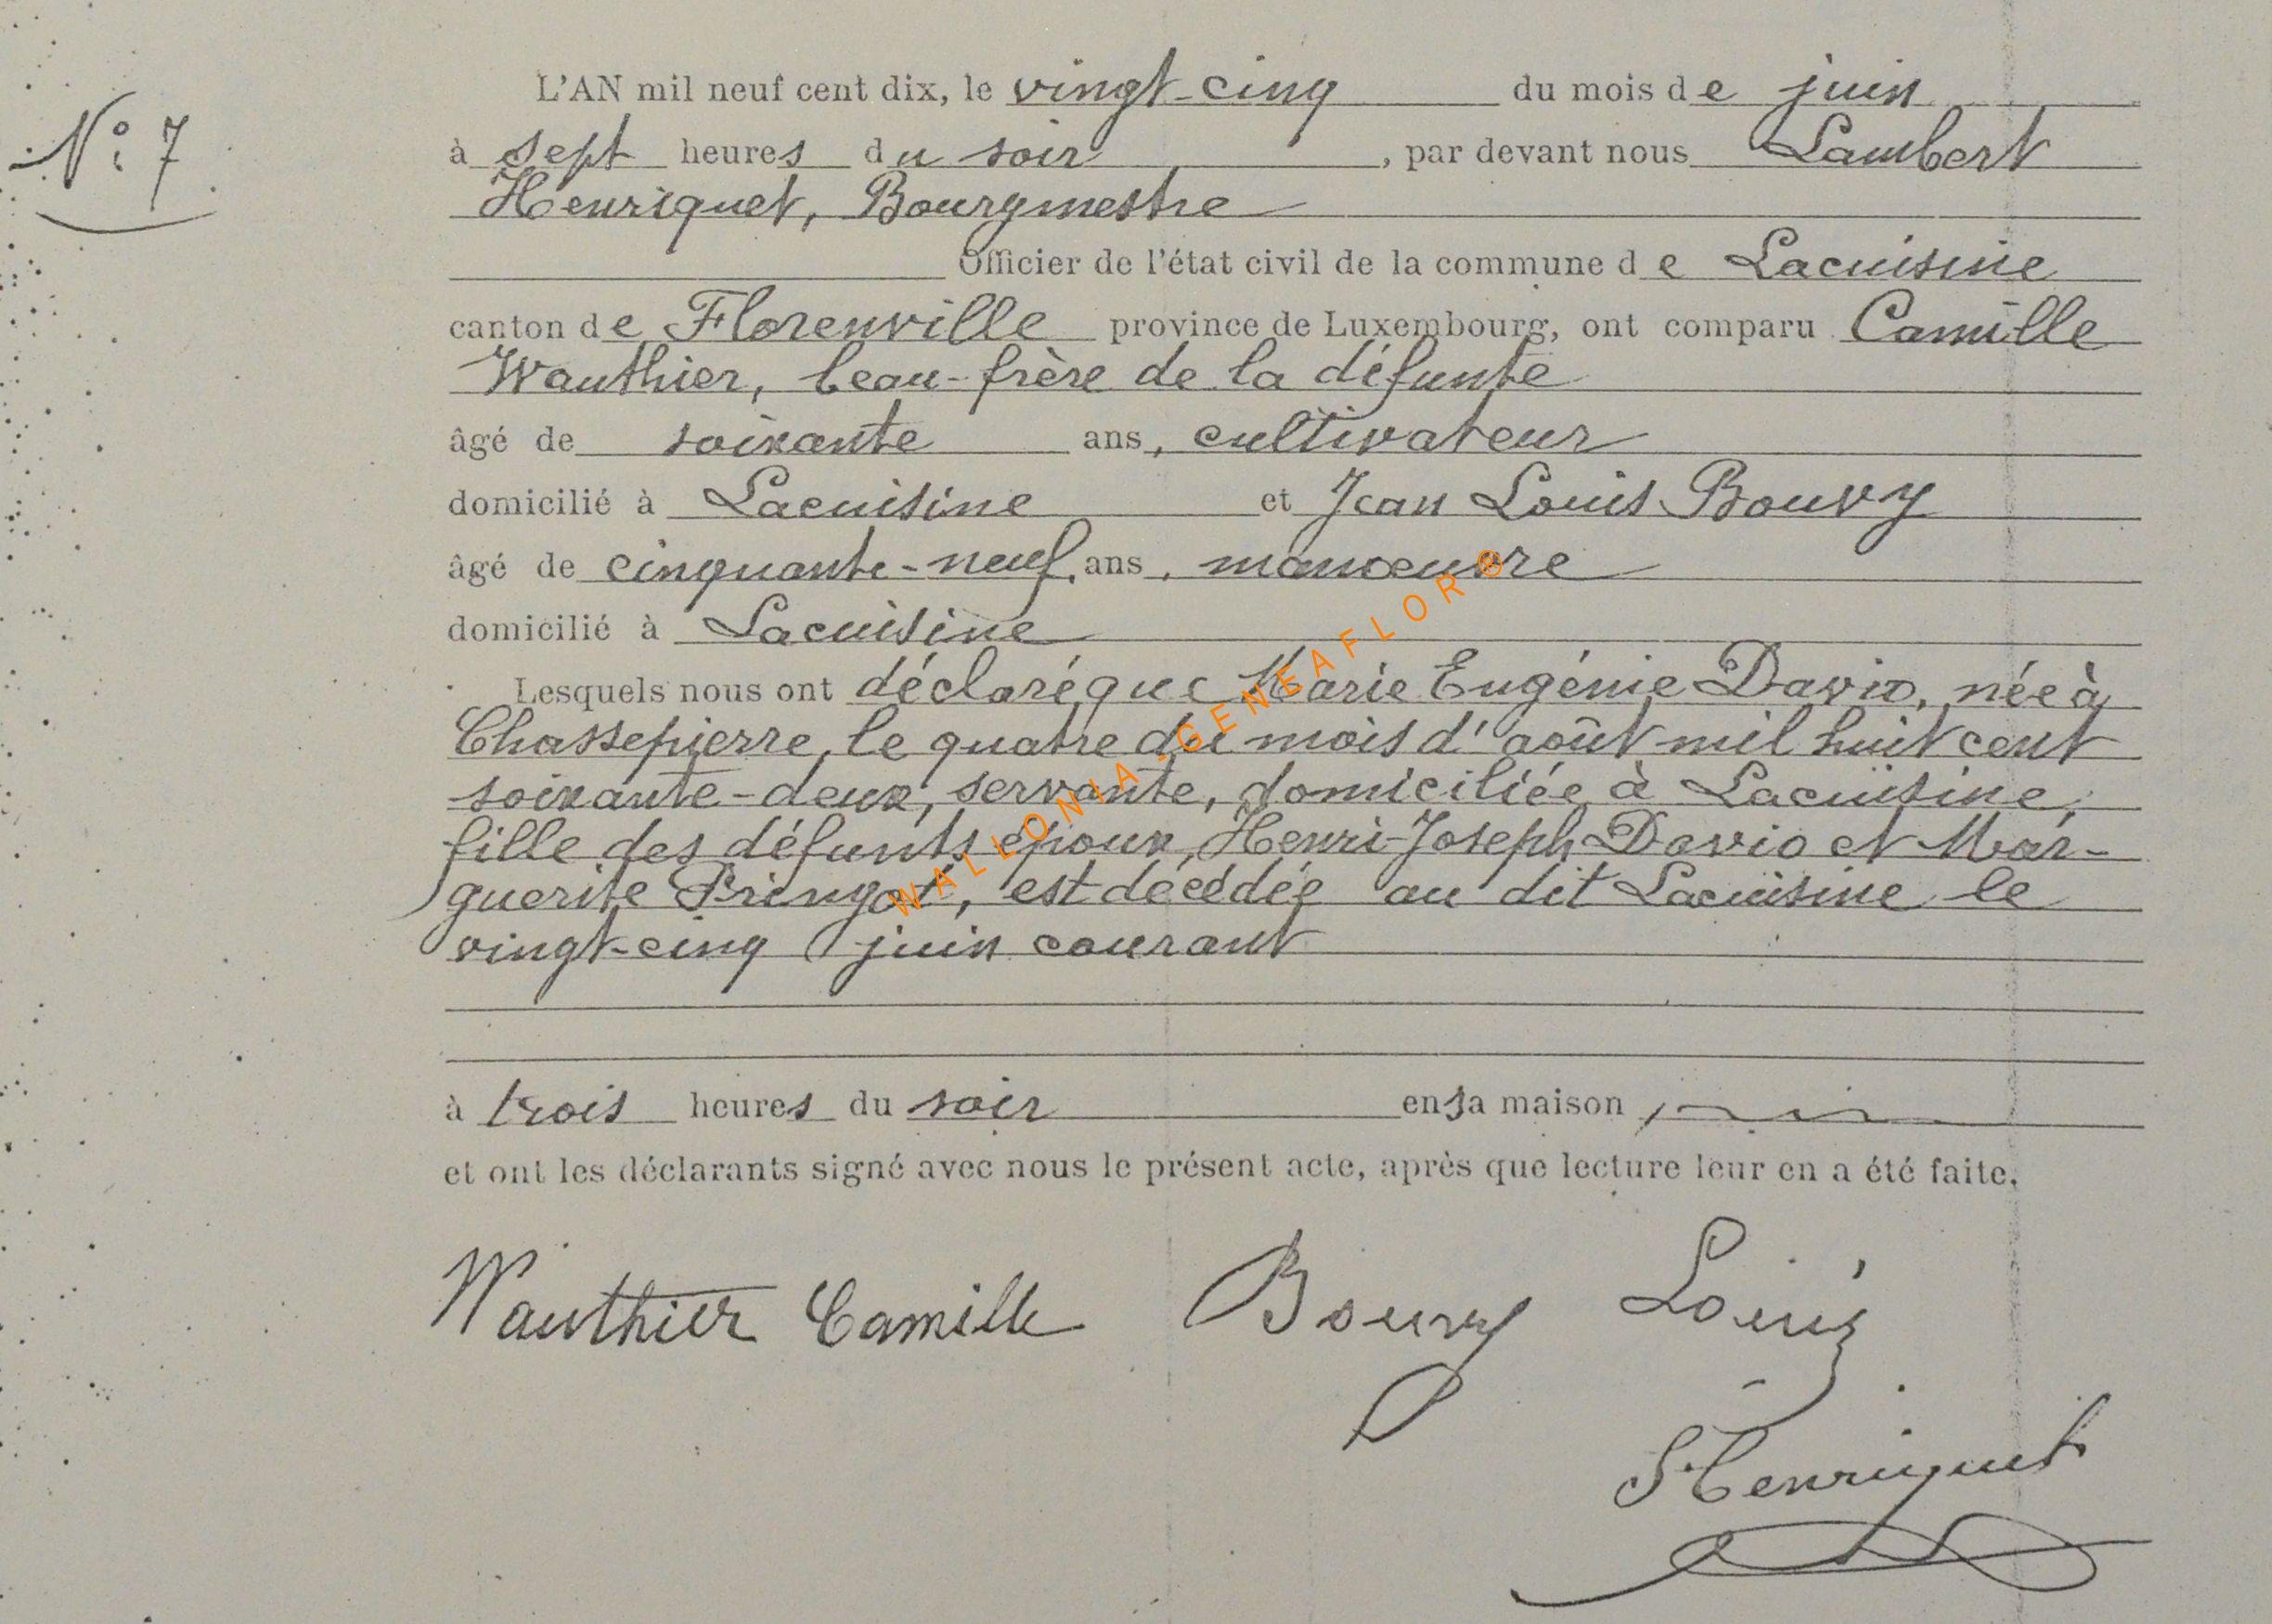 N° 7
L'AN mil neuf cent dix, le vingt-cinq du mois de juin
à sept heures du soir, par devant nous Lambert
Henriquet, Bourgmestre
Officier de l'état civil de la commune de Lacuisine
canton de Florenville province de Luxembourg, ont comparu Camille
Wauthier, beau-frère de la défunte
âgé de soixante ans, cultivateur
domicilié à Lacuisine et Jean Louis Bouvy
âgé de cinquante-neuf ans, manoeuvre
domicilié à Lacuisine
Lesquels nous ont déclaré que Marie Eugénie Davio, née à
Chassepierre, le quatre du mois d'août mil huit cent
soixante-deux, servante, domiciliée à Lacuisine,
fille des défunts époux, Henri-Joseph Davio et Mar-
guerite Pringot, est décédée au dit Lacuisine le
vingt-cinq juin courant
à trois heures du soir en sa maison
et ont les déclarants signé avec nous le présent acte, après que lecture leur en a été faite.
Wauthier Camille Bouvy Louis
Henriquet
WALLONIA-GENEAFLOR®